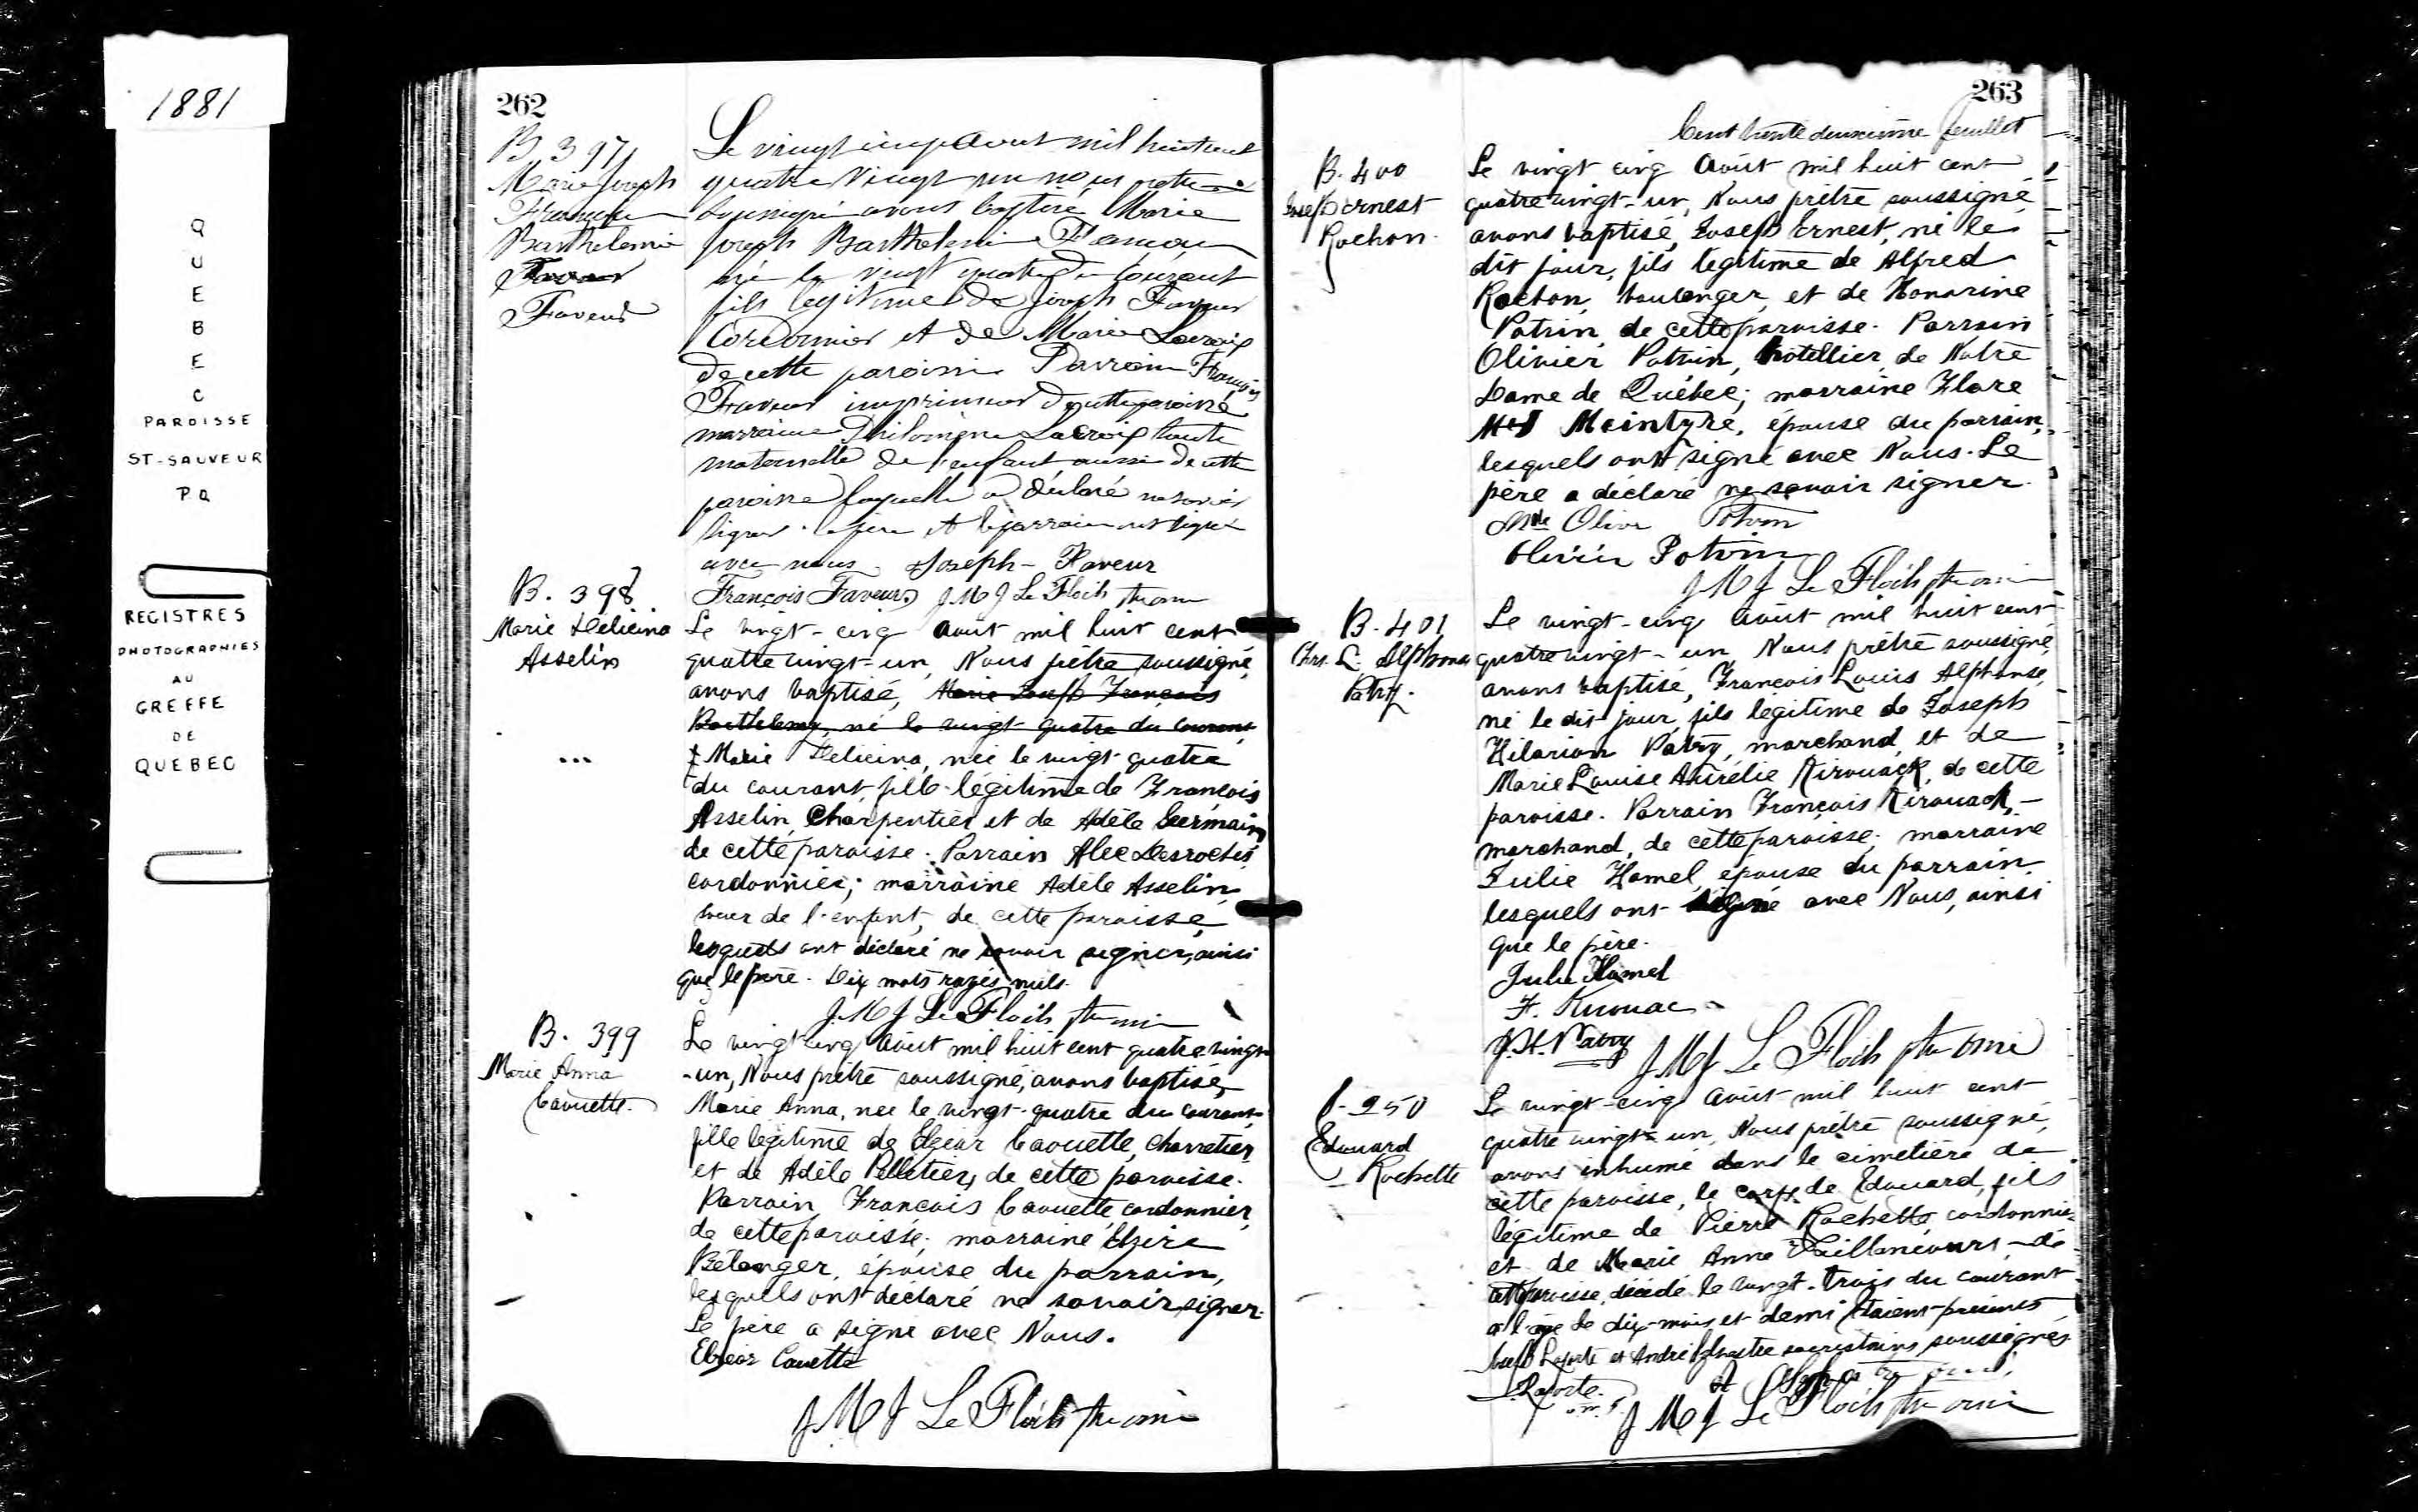 1881
QUEBEC
PAROISSE
ST-SAUVEUR
P Q
REGISTRES
PHOTOGRAPHIES
AU
GREFFE
DE
QUEBEC
262
B 397
Marie Joseph
François
Barthelemie
Faveur
Le vingt cinq aout mil huit cent
quatre vingt un nous prêtre
soussigné avons baptisé Marie
Joseph Barthelemie François
né le vingt quatre du courant
fils légitime de Joseph Faveur
Cordonnier et de Marie Lacroix
de cette paroisse Parrain François
Faveur imprimeur de cette paroisse
marraine Philomène Lacroix tante
maternelle de l'enfant aussi de cette
paroisse laquelle a déclaré ne savoir
signer le père et le parrain ont signé
avec nous. Joseph Faveur
François Faveur J M J Le Floch ptre omi
B. 398
Marie Delicina
Asselin
Le vingt-cinq Août mil huit cent
quatre vingt-un, Nous prêtre soussigné,
avons baptisé, Marie Joseph François
Barthelemy, né le vingt quatre du courant
+ Marie Delicina, née le vingt-quatre
du courant, fille légitime de François
Asselin Charpentier et de Adèle Germain
de cette paroisse. Parrain Alec Desroches
cordonnier; marraine Adèle Asselin,
soeur de l'enfant, de cette paroisse,
lesquels ont déclaré ne savoir signer, ainsi
que le père. Dix mots rayés nuls.
J. M J Le Floch ptre omi
B. 399
Marie Anna
Caouette.
Le vingt cinq Août mil huit cent quatre vingt
-un, Nous prêtre soussigné, avons baptisé,
Marie Anna, née le vingt-quatre du courant,
fille légitime de Elzear Caouette, charretier,
et de Adèle Pelletier, de cette paroisse.
Parrain, François Caouette cordonnier,
de cette paroisse; marraine Elzire
Bélanger, épouse du parrain,
lesquels ont déclaré ne savoir signer.
Le père a signé avec Nous.
Elzear Couette
J M J Le Floch ptre omi
263
Cent trente deuxième feuillet
B. 400
Joseph Ernest
Rochon.
Le vingt cinq Août mil huit cent
quatre vingt-un, Nous prêtre soussigné
avons baptisé, Joseph Ernest, né le
dit jour, fils légitime de Alfred
Rochon, boulanger, et de Honorine
Potvin, de cette paroisse. Parrain
Olivier Potvin, hôtellier, de Notre
Dame de Québec; marraine Flore
McIntyre, épouse du parrain,
lesquels ont signé avec Nous. Le
père a déclaré ne savoir signer.
Mde Olivr Potvin
Olivier Potvin
J M J Le Floch ptre omi
B. 401
Frs. L. Alphonse
Patry.
Le vingt-cinq Août mil huit cent
quatre vingt-un Nous prêtre soussigné,
avons baptisé, François Louis Alphonse,
né le dit jour, fils légitime de Joseph
Hilarion Patry, marchand, et de
Marie Louise Aurélie Kirouack, de cette
paroisse. Parrain François Kirouack,
marchand, de cette paroisse; marraine
Julie Hamel, épouse du parrain
lesquels ont signé avec Nous, ainsi
que le père.
Julie Hamel
F. Kirouac
J. H. Patry
J M J Le Floch ptre omi
S. 250
Edouard
Rochette
Le vingt-cinq Août mil huit cent
quatre vingt-un, Nous prêtre soussigné,
avons inhumé dans le cimetière de
cette paroisse, le corps de Edouard, fils
légitime de Pierre Rochette, cordonnier
et de Marie Anne Vaillancourt de
cette paroisse, décédé le vingt-trois du courant
à l'age de dix-mois et demi. Etaient présents
Joseph Laporte et André sacristains soussignés
Laporte
J M J Le Floch ptre omi